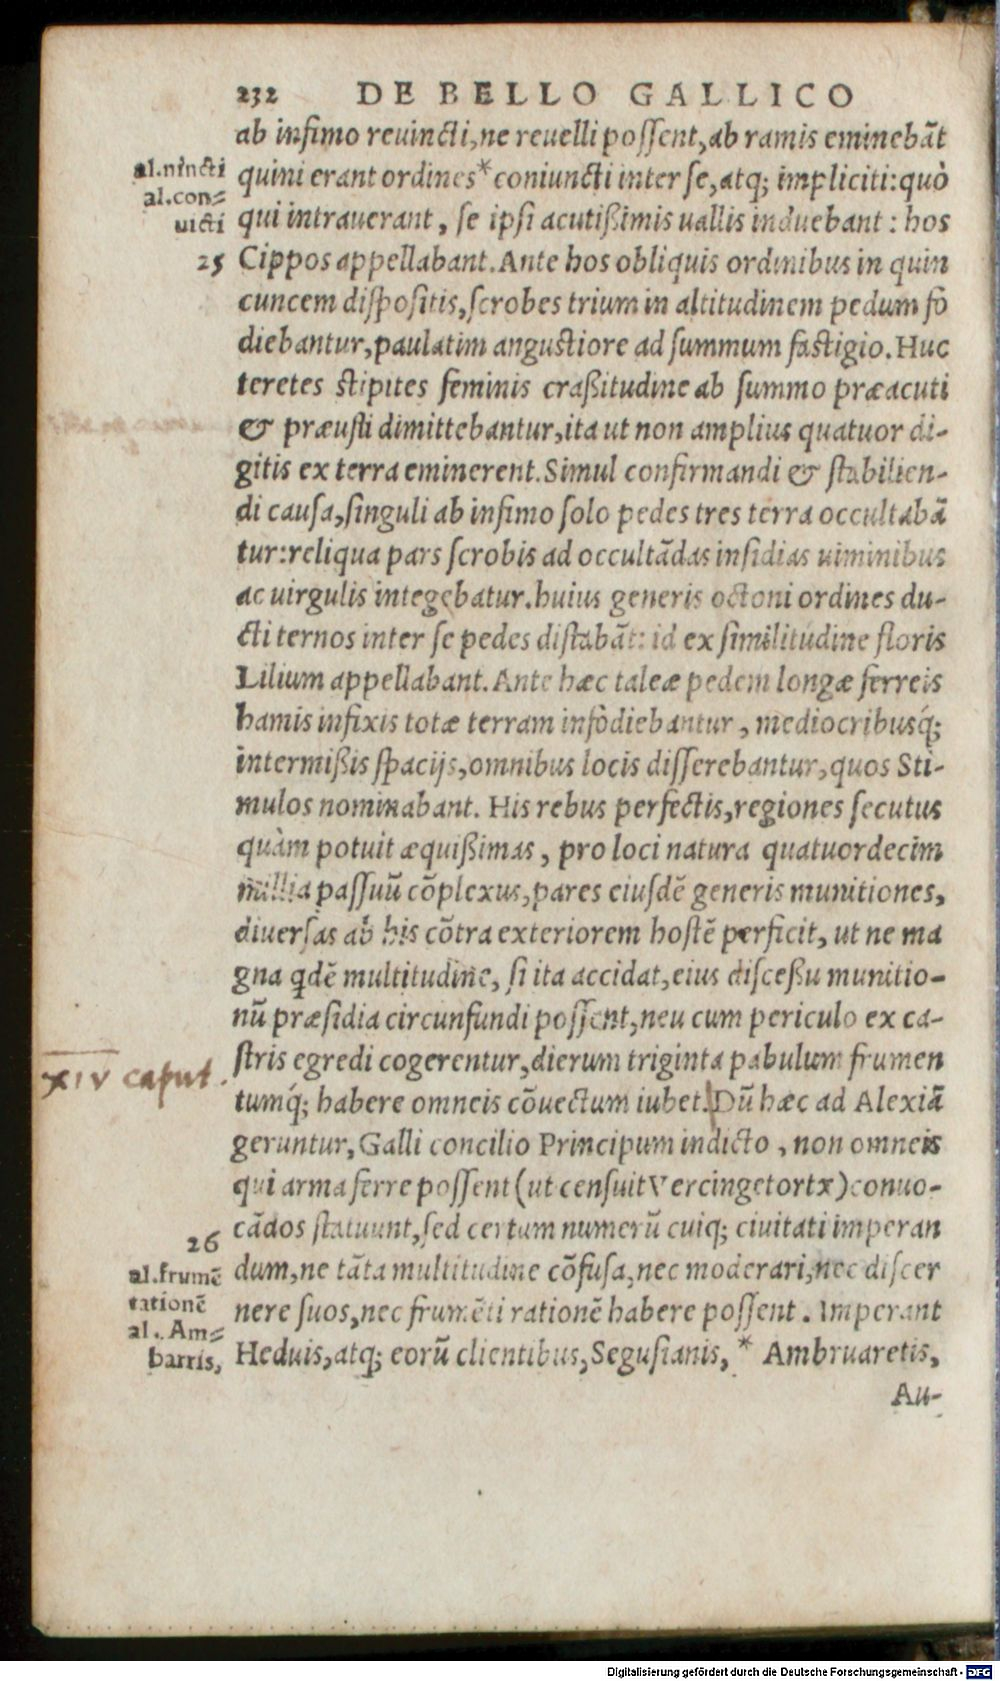 232 DE BELLO GALLICO
ab infimo reuincti, ne reuelli possent, ab ramis eminebāt
al. nincti
quini erant ordines * coniuncti inter se, atq; impliciti: quò
al. con=
uicti
qui intrauerant, se ipsi acutißimis uallis induebant: hos
25
Cippos appellabant. Ante hos obliquis ordinibus in quin
cuncem dispositis, scrobes trium in altitudinem pedum fo
diebantur, paulatim angustiore ad summum fastigio. Huc
teretes stipites feminis craßitudine ab summo præacuti
& præusti dimittebantur, ita ut non amplius quatuor di-
gitis ex terra eminerent. Simul confirmandi & stabilien-
di causa, singuli ab infimo solo pedes tres terra occultabā
tur: reliqua pars scrobis ad occultādas insidias uiminibus
ac uirgulis integebatur. huius generis octoni ordines du-
cti ternos inter se pedes distabāt: id ex similitudine floris
Lilium appellabant. Ante hæc taleæ pedem longæ ferreis
hamis infixis totæ terram infodiebantur, mediocribusq́;
intermißis spacijs, omnibus locis disserebantur, quos Sti-
mulos nominabant. His rebus perfectis, regiones secutus
quàm potuit æquißimas, pro loci natura quatuordecim
millia passuū cōplexus, pares eiusdē generis munitiones,
diuersas ab his cōtra exteriorem hostē perficit, ut ne ma
gna qdē multitudine, si ita accidat, eius disceßu munitio-
nū præsidia circunfundi possent, neu cum periculo ex ca-
stris egredi cogerentur, dierum triginta pabulum frumen
XIV caput.
tumq́; habere omneis cōuectum iubet. Dū hæc ad Alexiā
geruntur, Galli concilio Principum indicto, non omneis
qui arma ferre possent (ut censuit Vercingetortx) conuo-
cādos statuunt, sed certum numerū cuiq; ciuitati imperan
26
al. frumē
tationē
al. Am=
barris,
dum, ne tāta multitudine cōfusa, nec moderari, nec discer
nere suos, nec frumēti rationē habere possent. Imperant
Heduis, atq; eorū clientibus, Segusianis, * Ambruaretis,
Au-
Digitalisierung gefördert durch die Deutsche Forschungsgemeinschaft - DFG